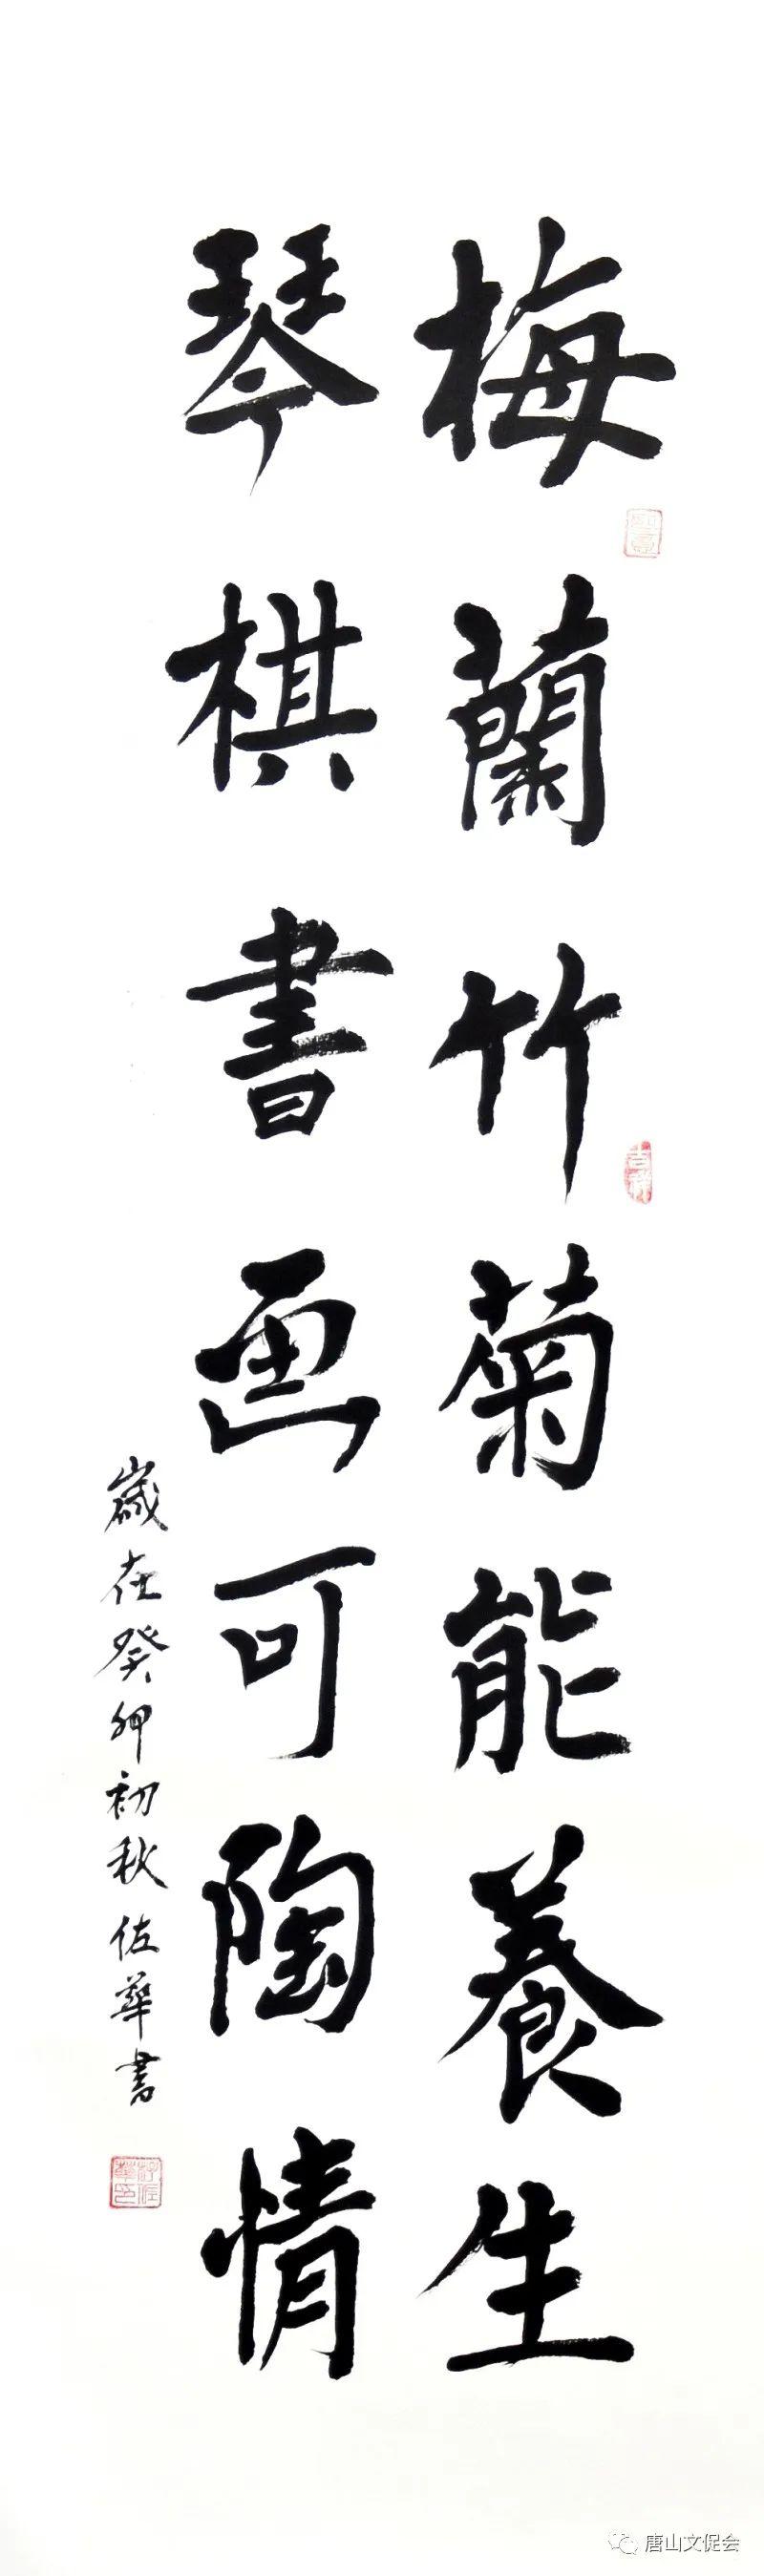 梅蘭竹菊能養生
琴棋書画可陶情
歲在癸卯初秋佐華書
吉祥
唐山文促会